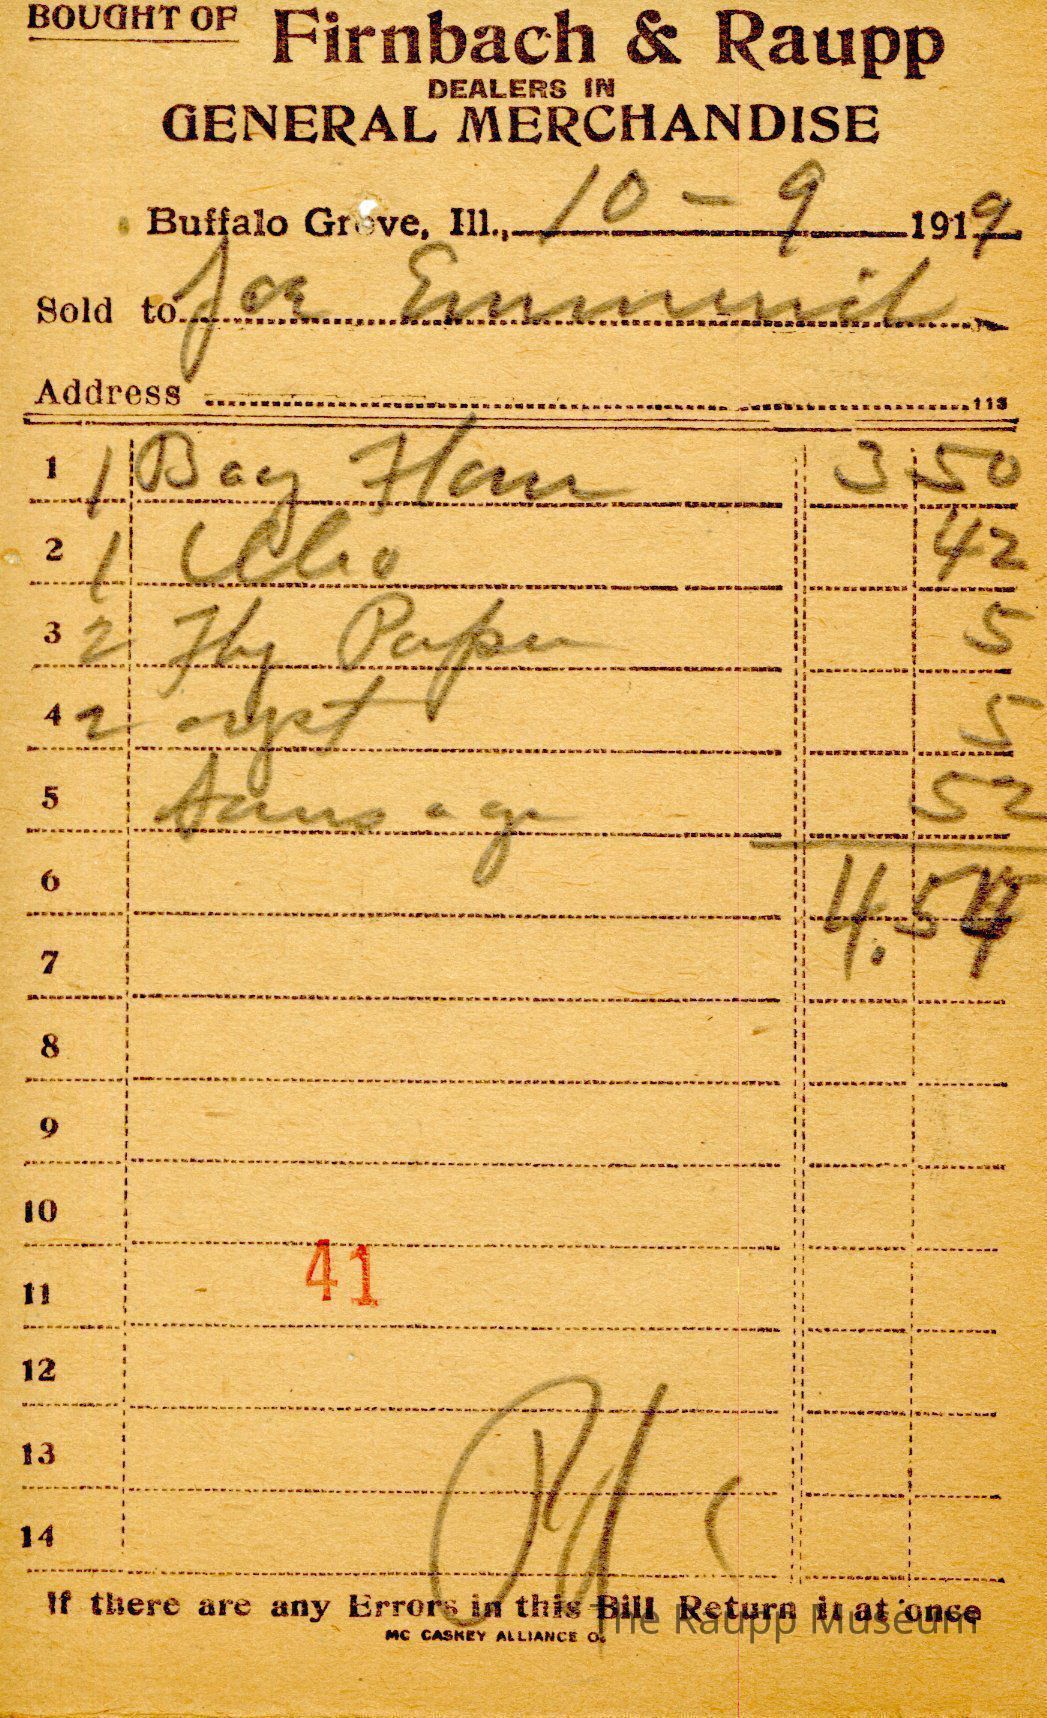 BOUGHT OF Firnbach & Raupp
DEALERS IN
GENERAL MERCHANDISE
Buffalo Grove, Ill., 10 - 9 1919
Sold to Joe
Address 113
1 1 Bag Flour 3 50
2 1 Oleo 42
3 2 Fly Paper 5
4 2 yst 5
5 Sausage 52
6 4.54
7
8
9
10
41
11
12
13
14
Pd
If there are any Errors in this Bill Return it at once
The Raupp Museum
MC CASKEY ALLIANCE O.